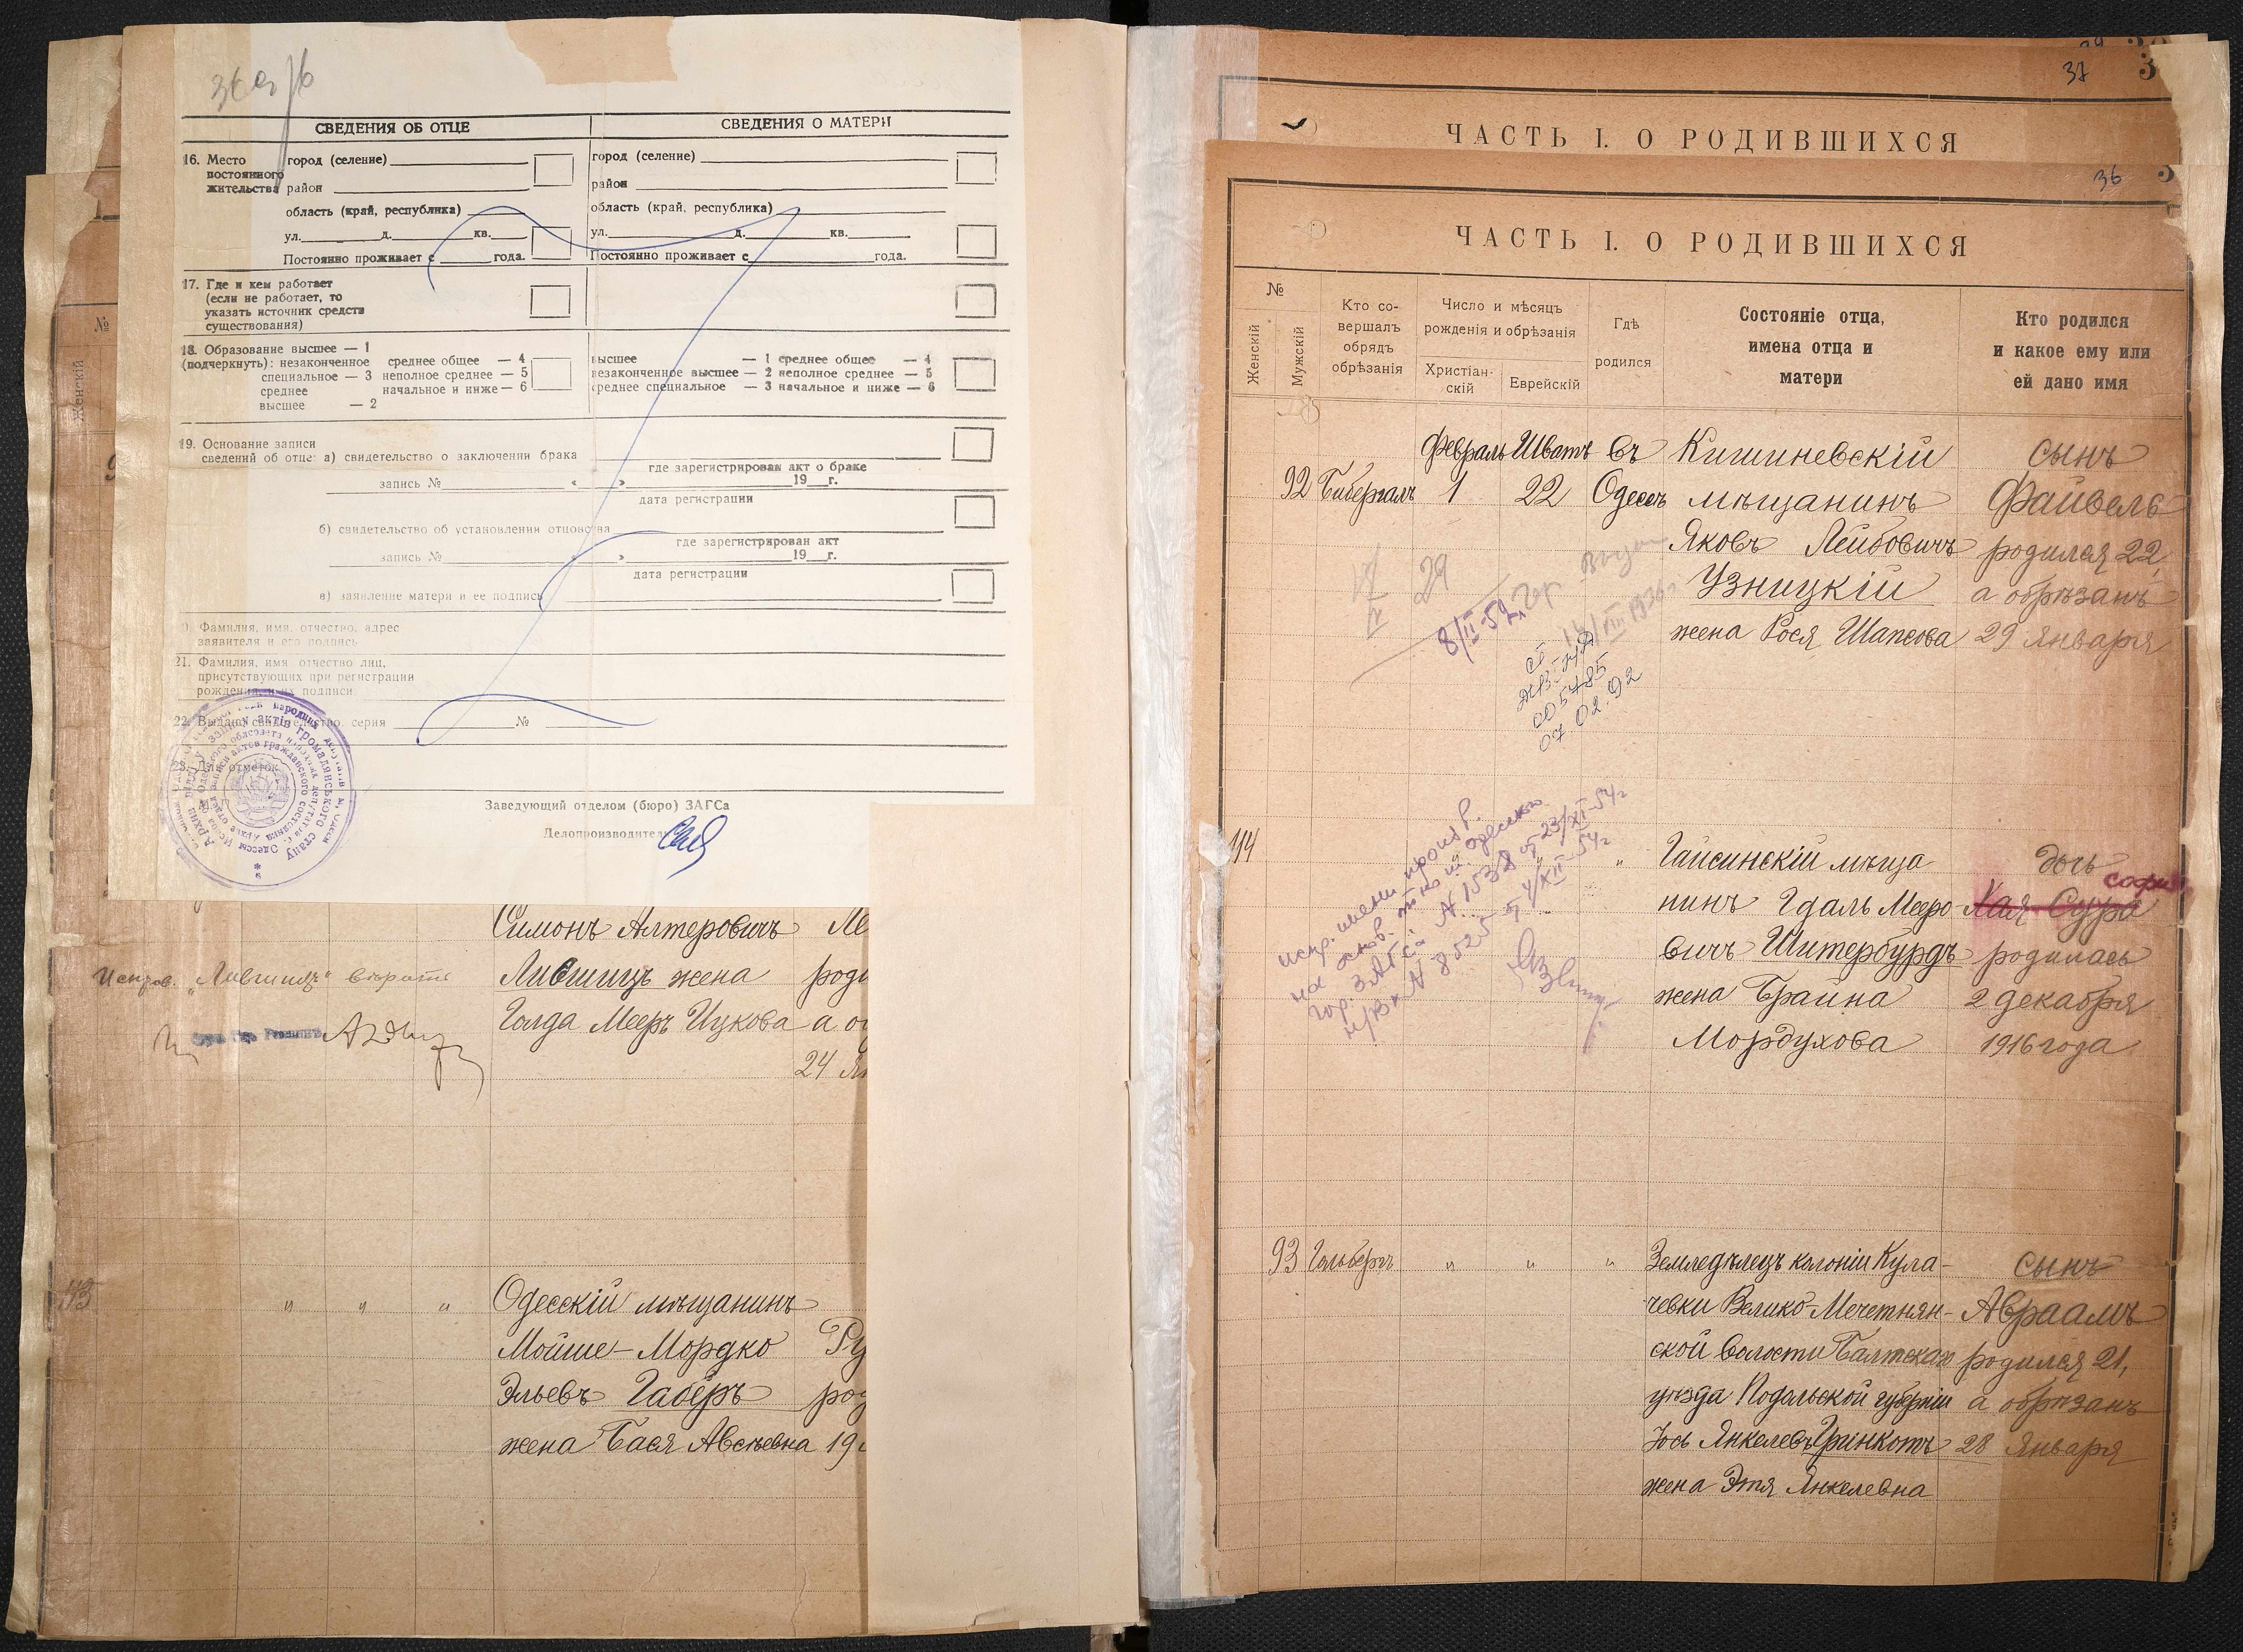 36
СВЕДЕНИЯ ОБ ОТЦЕ
СВЕДЕНИЯ О МАТЕРИ
16. Место постоянного жительства
город (селение)
район
область (край, республика)
ул. д. кв.
Постоянно проживает с года.
город (селение)
район
область (край, республика)
ул. д. кв.
Постоянно проживает с года.
17. Где и кем работает
(если не работает, то
указать источник средств
существования)
18. Образование высшее — 1
(подчеркнуть): незаконченное среднее общее — 4
специальное — 3 неполное среднее — 5
среднее начальное и ниже — 6
высшее — 2
высшее — 1 среднее общее — 4
незаконченное высшее — 2 неполное среднее — 5
среднее специальное — 3 начальное и ниже — 6
19. Основание записи
сведений об отце: а) свидетельство о заключении брака
где зарегистрирован акт о браке
запись № « » 19 г.
дата регистрации
б) свидетельство об установлении отцовства
где зарегистрирован акт
запись № « » 19 г.
дата регистрации
в) заявление матери и ее подпись
Фамилия, имя, отчество, адрес
заявителя и его подпись
21. Фамилия, имя отчество лиц,
присутствующих при регистрации
рождения, и их подписи
22. Выдано свидетельство серия №
23. Для отметок
Заведующий отделом (бюро) ЗАГСа
Делопроизводитель
№
Женскій
Симонъ Алтеровичъ Ле
Лившицъ жена роди
Голда Мееръ Ицкова а о
24 Ян
Испров. „Лившицъ" вѣрить
113 " " " Одесскій мѣщанинъ
Мойше-Мордко Ру
Эльевъ Габеръ род
жена Бася Авсѣевна 19
37
ЧАСТЬ I. О РОДИВШИХСЯ
36
ЧАСТЬ I. О РОДИВШИХСЯ
№
Женскій
Мужскій
Кто со-
вершалъ
обрядъ
обрѣзанія
Число и мѣсяцъ
рожденія и обрѣзанія
Христіан-
скій
Еврейскій
Гдѣ
родился
Состояніе отца,
имена отца и
матери
Кто родился
и какое ему или
ей дано имя
Февраль Шватъ въ Кишиневскій сынъ
92 Бибергалъ 1 22 Одессѣ мѣщанинъ Файвель
Яковъ Лейбовичъ родился 22,
Узницкій а обрѣзанъ
жена Рося Шапсова 29 Января
29
8/II-52г.
005485
07.02.92
114 " Гайсинскій мѣща дочь
нинъ Гдаль Мееро Хая-Сура софия
вичъ Штербурдъ родилась
жена Брайна 2 декабря
Мордухова 1916 года
испр. имени произв.
на основ.
гор. ЗАГСа № 1538 от 23/XI-54г
№ 8525 от 4/XII-54г
93 Гольбергъ " " " Земледѣлецъ колоніи Кула- сынъ
чевки Велико-Мечетнян- Авраамъ
ской волости Балтскаго родился 21,
уѣзда Подольской губерніи а обрѣзанъ
Іось Янкелевъ Гринкотъ 28 Января
жена Этя Янкелевна